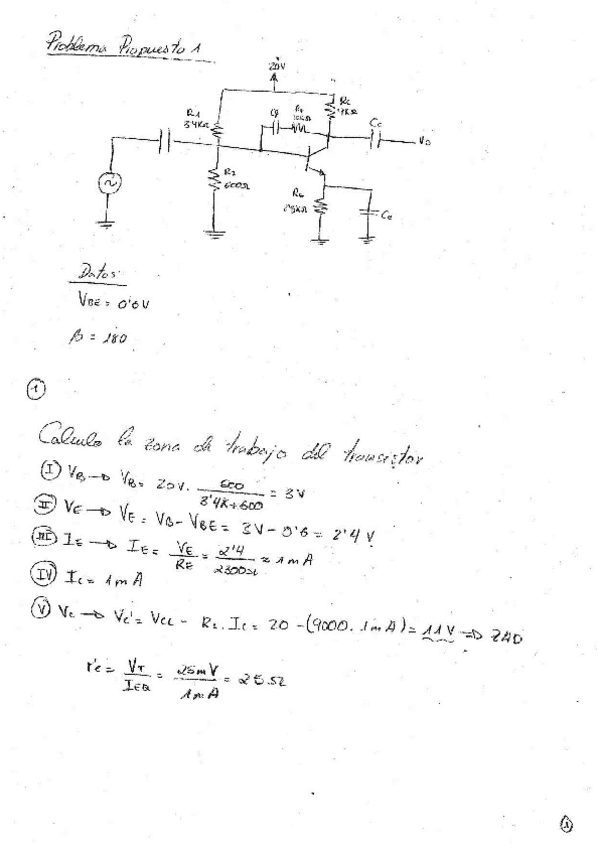 Problema Propuesto 1
20V
R1
3'4KΩ
Cf
Rf
10KΩ
Rc
9KΩ
Cc
Vo
R2
600Ω
RE
Ce
Datos:
VBE = 0'6V
β = 180
1
Calculo la zona de trabajo del transistor
I VB → VB = 20V · 600 / 3'4K+600 = 3V
II VE → VE = VB - VBE = 3V - 0'6 = 2'4 V
III IE → IE = VE / RE = 2'4 / 2300Ω ≈ 1mA
IV Ic = 1mA
V Vc → Vc = Vcc - Rc · Ic = 20 - (9000 · 1mA) = 11V ⇒ ZAD
r'e = VT / IEQ = 25mV / 1mA = 25Ω
1